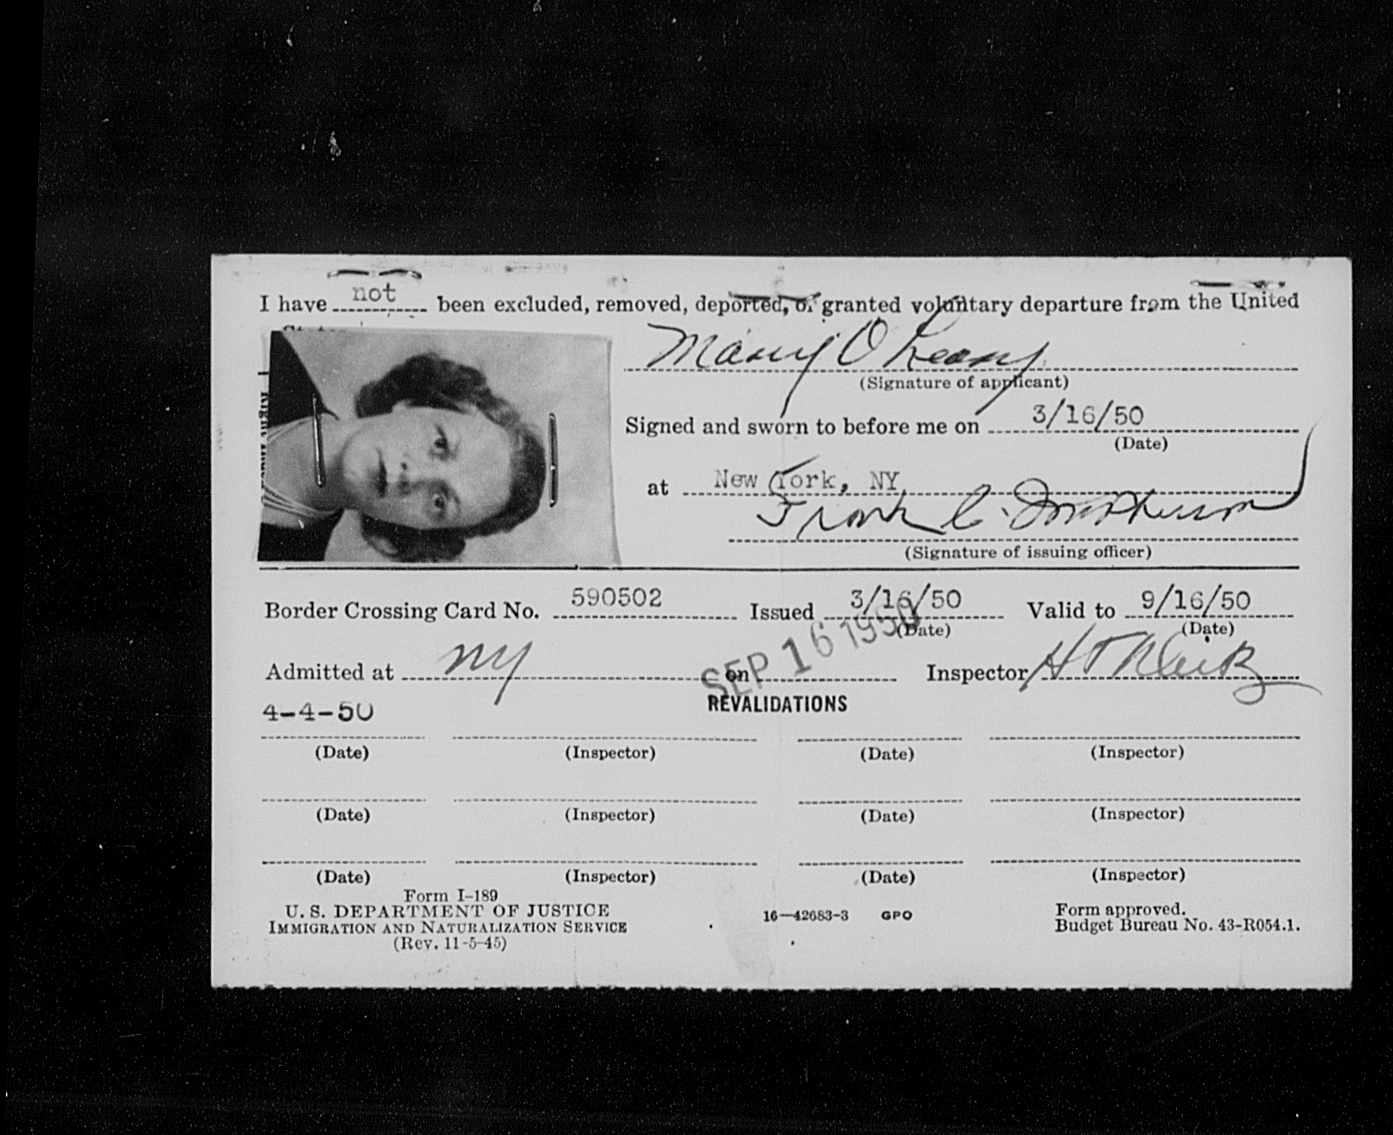 I have not been excluded, removed, deported, or granted voluntary departure from the United
States
Mary O Leary
(Signature of applicant)
Signed and sworn to before me on 3/16/50
(Date)
at New York, NY
Frank C.
(Signature of issuing officer)
Border Crossing Card No. 590502 Issued 3/16/50 Valid to 9/16/50
(Date) (Date)
Admitted at NY on SEP 16 1950 Inspector
REVALIDATIONS
4-4-50
(Date) (Inspector) (Date) (Inspector)
(Date) (Inspector) (Date) (Inspector)
(Date) (Inspector) (Date) (Inspector)
Form I-189
U. S. DEPARTMENT OF JUSTICE
IMMIGRATION AND NATURALIZATION SERVICE
(Rev. 11-5-45)
16—42683-3 GPO
Form approved.
Budget Bureau No. 43-R054.1.